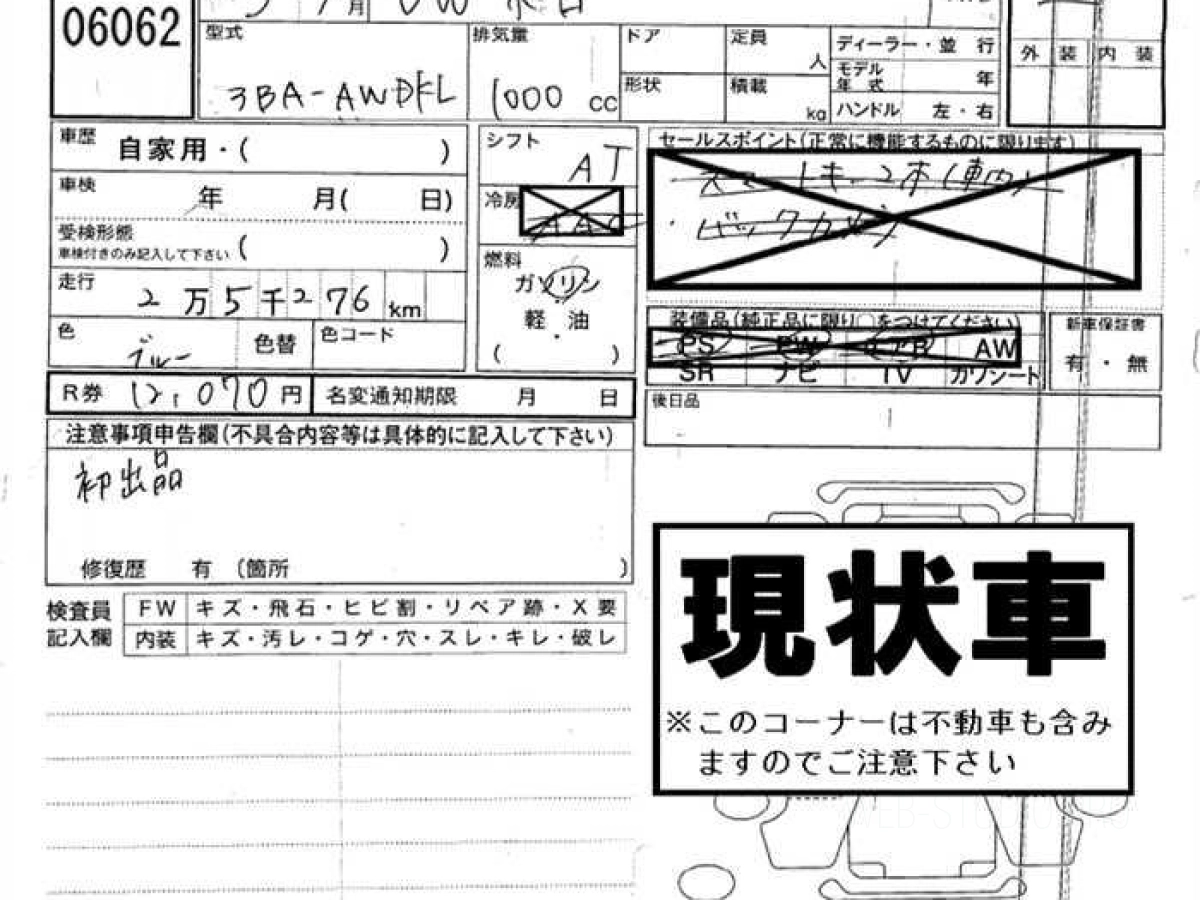 06062
型式 排気量 ドア 定員 人 ディーラー・並 行
3BA-AWDKL 1000 cc 形状 積載 kg モデル年式 年
ハンドル 左・右
外 装 内 装
車歴 自家用・( )
シフト AT
セールスポイント(正常に機能するものに限ります)
スマートキー2本(車内)
車検 年 月( 日)
冷房 AAC
・バックカメラ
受検形態
車検付きのみ記入して下さい ( )
燃料
ガソリン
軽・油
( )
走行 2万5千276km
色 ブルー 色替 色コード
装備品(純正品に限り○をつけてください)
PS PW エアB AW
SR ナビ TV カワシート
新車保証書
有・無
R券 12,070円 名変通知期限 月 日
後日品
注意事項申告欄(不具合内容等は具体的に記入して下さい)
初出品
修復歴 有 (箇所 )
検査員記入欄
FW キズ・飛石・ヒビ割・リペア跡・X要
内装 キズ・汚レ・コゲ・穴・スレ・キレ・破レ
現状車
※このコーナーは不動車も含み
ますのでご注意下さい